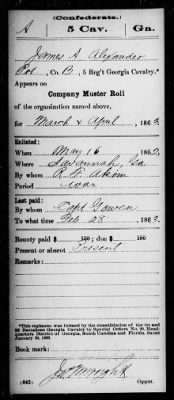 (Confederate.)
A 5 Cav. Ga.
James A. Alexander
Pvt, Co. B, 5 Reg't Georgia Cavalry.*
Appears on
Company Muster Roll
of the organization named above,
for March & April, 1863.
Enlisted:
When May 16, 1862.
Where Savannah, Ga
By whom
Period war
Last paid:
By whom Capt Gowen
To what time Feb 28, 1863.
Bounty paid $ 100; due $ 100
Present or absent Present
Remarks:
*This regiment was formed by the consolidation of the 1st and 2d Battalions Georgia Cavalry by Special Orders No. 20, Headquarters District of Georgia, South Carolina and Florida, dated January 20, 1863.
Book mark:
(642) Copyist.